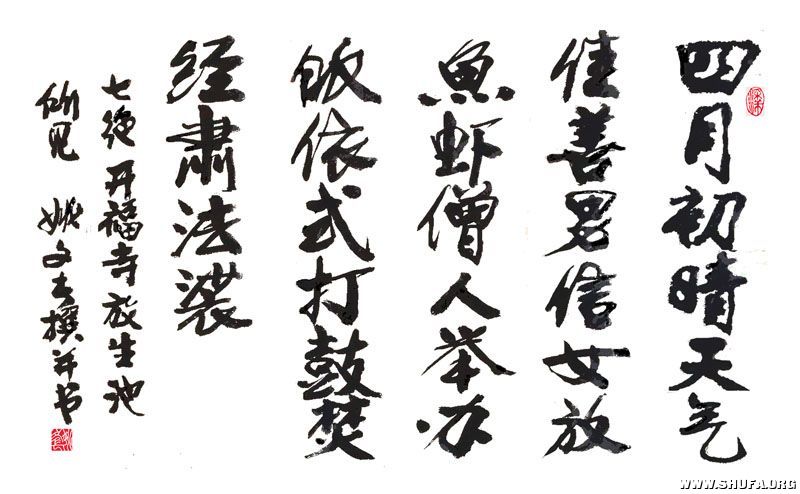 四月初晴天气
佳善男信女放
鱼虾僧人举办
皈依式打鼓焚
经肃法裟
七绝开福寺放生池
所见 姚文撰并书
WWW.SHUFA.ORG